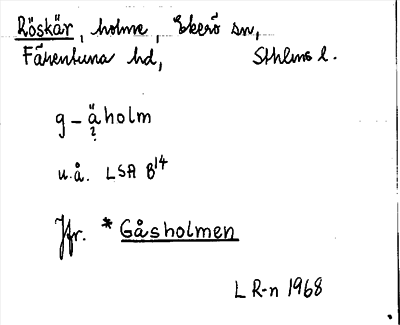 Röskär, holme, Ekerö sn,
Färentuna hd, Sthlms l.
g-äholm
?
u.å. LSA B14
Jfr. *Gåsholmen
L R-n 1968